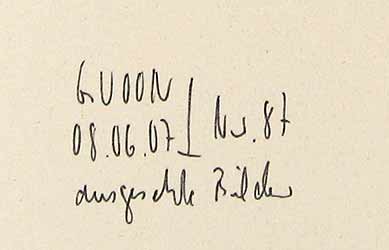 GUDON
08.06.07 Nr. 87
ausgesuchte Bilder